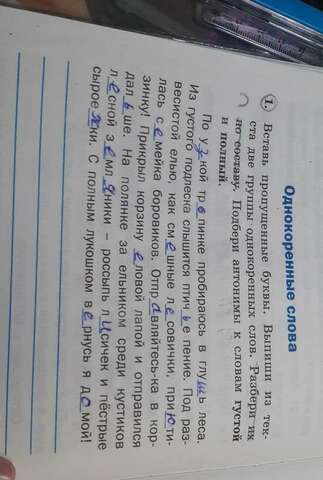 Однокоренные слова
1. Вставь пропущенные буквы. Выпиши из тек-
ста две группы однокоренных слов. Разбери их
по составу. Подбери антонимы к словам густой
и полный.
По узкой тропинке пробираюсь в глушь леса.
Из густого подлеска слышится птичье пение. Под раз-
весистой елью, как смешные лесовички, приюти-
лась семейка боровиков. Отправляйтесь-ка в кор-
зинку! Прикрыл корзину еловой лапой и отправился
дальше. На полянке за ельником среди кустиков
лесной земляники – россыпь лисичек и пёстрые
сыроежки. С полным лукошком вернусь я домой!